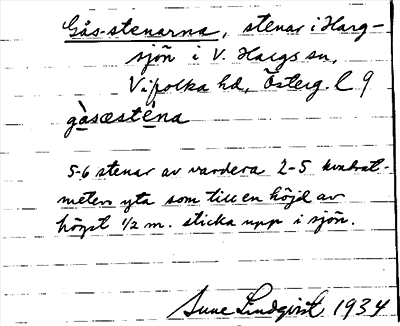 Gås-stenarna, stenar i Harg-
sjön i V. Hargs sn,
Vifolka hd, Österg. l 9
gàsæsténa
5-6 stenar av vardera 2-5 kvadrat-
meters yta som till en höjd av
högst 1/2 m. sticka upp i sjön.
Sune Lindqvist 1934